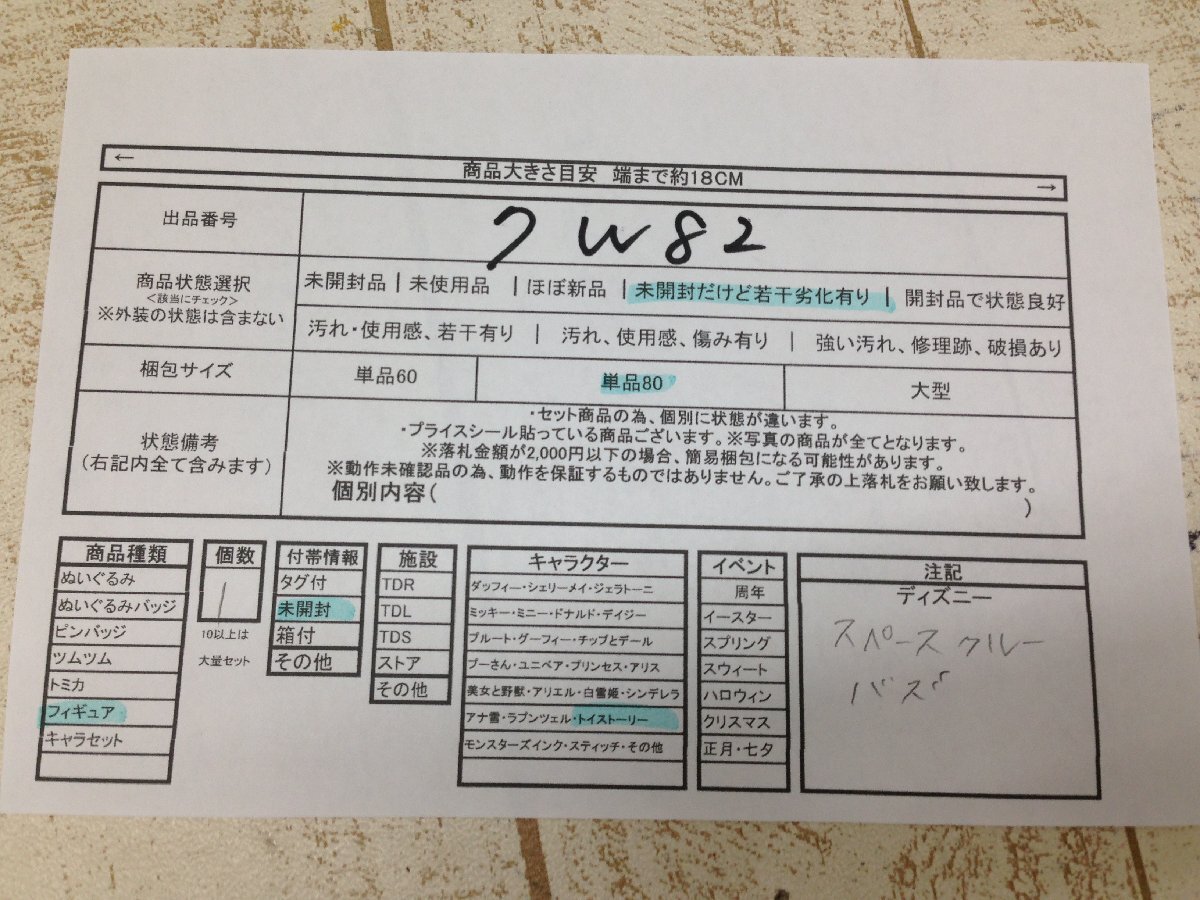 ← 商品大きさ目安 端まで約18CM →
出品番号 クW82
商品状態選択
<該当にチェック>
※外装の状態は含まない
未開封品 | 未使用品 | ほぼ新品 | 未開封だけど若干劣化有り | 開封品で状態良好
汚れ・使用感、若干有り | 汚れ、使用感、傷み有り | 強い汚れ、修理跡、破損あり
梱包サイズ 単品60 単品80 大型
状態備考
(右記内全て含みます)
・セット商品の為、個別に状態が違います。
・プライスシール貼っている商品ございます。※写真の商品が全てとなります。
※落札金額が2,000円以下の場合、簡易梱包になる可能性があります。
※動作未確認品の為、動作を保証するものではありません。ご了承の上落札をお願い致します。
個別内容( )
商品種類
ぬいぐるみ
ぬいぐるみバッジ
ピンバッジ
ツムツム
トミカ
フィギュア
キャラセット
個数
1
10以上は
大量セット
付帯情報
タグ付
未開封
箱付
その他
施設
TDR
TDL
TDS
ストア
その他
キャラクター
ダッフィー・シェリーメイ・ジェラトーニ
ミッキー・ミニー・ドナルド・デイジー
プルート・グーフィー・チップとデール
プーさん・ユニベア・プリンセス・アリス
美女と野獣・アリエル・白雪姫・シンデレラ
アナ雪・ラプンツェル・トイストーリー
モンスターズインク・スティッチ・その他
イベント
周年
イースター
スプリング
スウィート
ハロウィン
クリスマス
正月・七夕
注記
ディズニー
スペースクルー
バズ